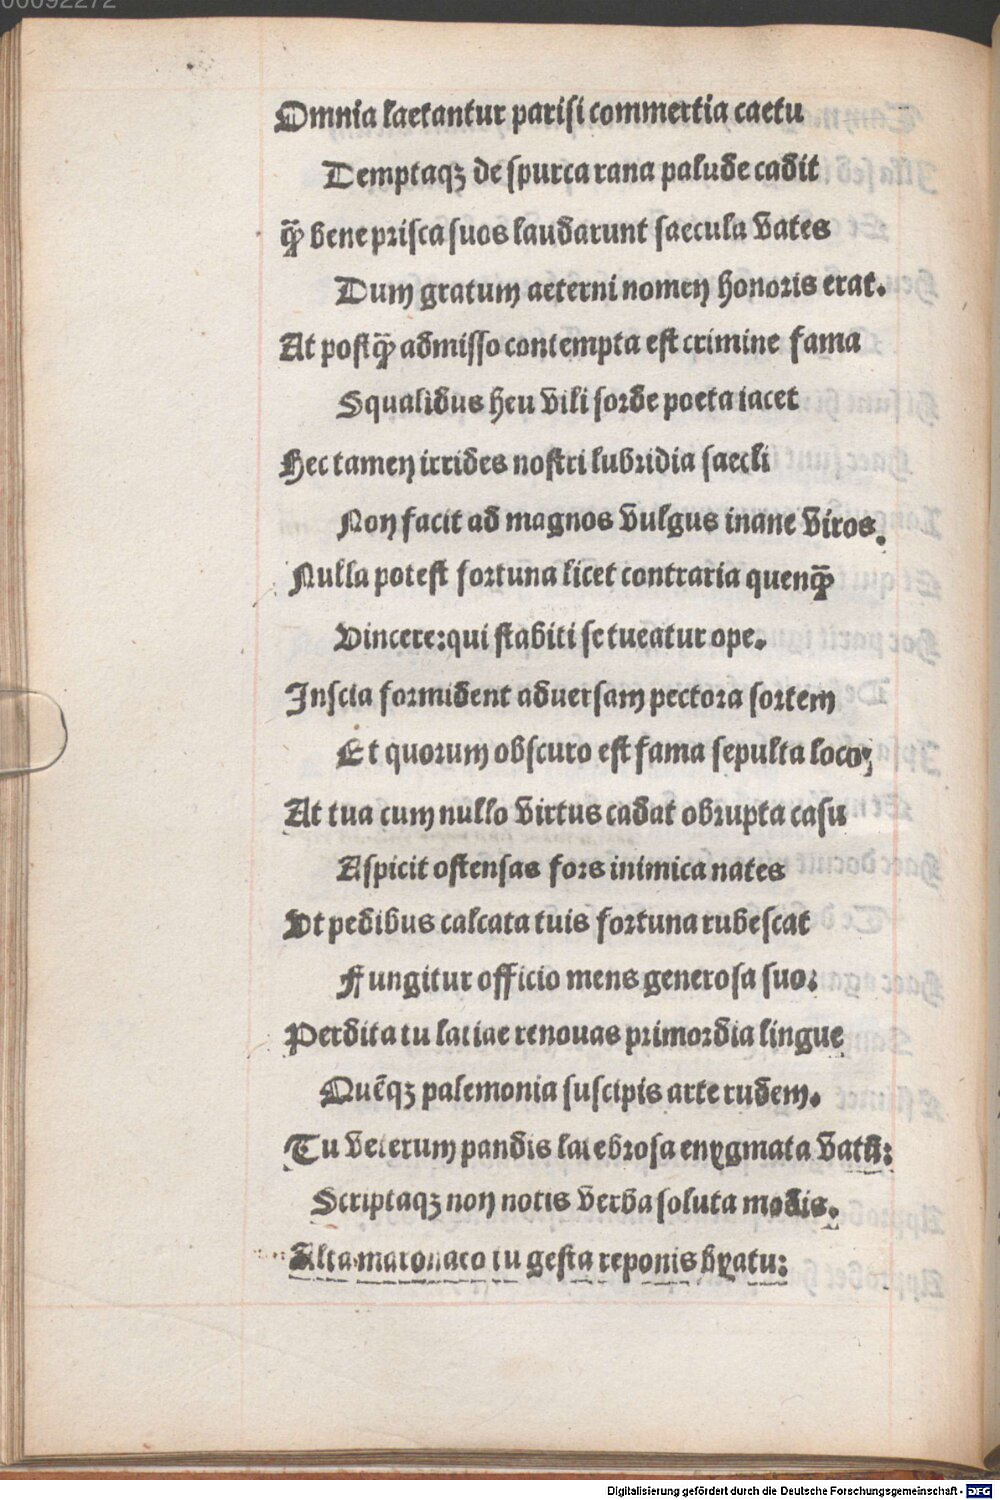 00092272
Omnia laetantur parisi commertia caetu
Temptaqꝫ de spurca rana palude cadit
q̈ꝫ bene prisca suos laudarunt saecula vates
Dum gratum aeterni nomen honoris erat.
At postq̈ꝫ admisso contempta est crimine fama
Squalidus heu vili sorde poeta iacet
Hec tamen irrides nostri lubridia saecli
Non facit ad magnos vulgus inane viros.
Nulla potest fortuna licet contraria quenq̈ꝫ
Vincere: qui stabiti se tueatur ope.
Inscia formident aduersam pectora sortem
Et quorum obscuro est fama sepulta loco;
At tua cum nullo virtus cadat obrupta casu
Aspicit ostensas fors inimica nates
Vt pedibus calcata tuis fortuna rubescat
Fungitur officio mens generosa suo:
Perdita tu latiae renouas primordia lingue
Quēqꝫ palemonia suscipis arte rudem.
Tu veterum pandis latebrosa enygmata vatū:
Scriptaqꝫ non notis verba soluta modis.
Alta maronaeo tu gesta reponis hyatu:
Digitalisierung gefördert durch die Deutsche Forschungsgemeinschaft - DFG